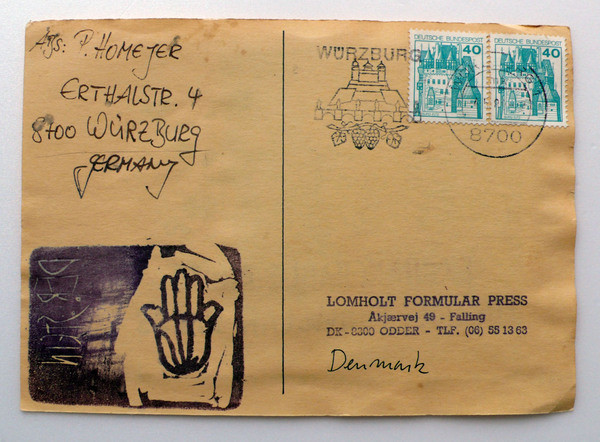 Abs: P. HOMEJER
ERTHALSTR. 4
8700 WÜRZBURG
GERMANY
WÜRZBURG
DEUTSCHE BUNDESPOST
40
DEUTSCHE BUNDESPOST
40
8700
LOMHOLT FORMULAR PRESS
Akjærvej 49 - Falling
DK-8300 ODDER - TLF. (06) 55 13 63
Denmark